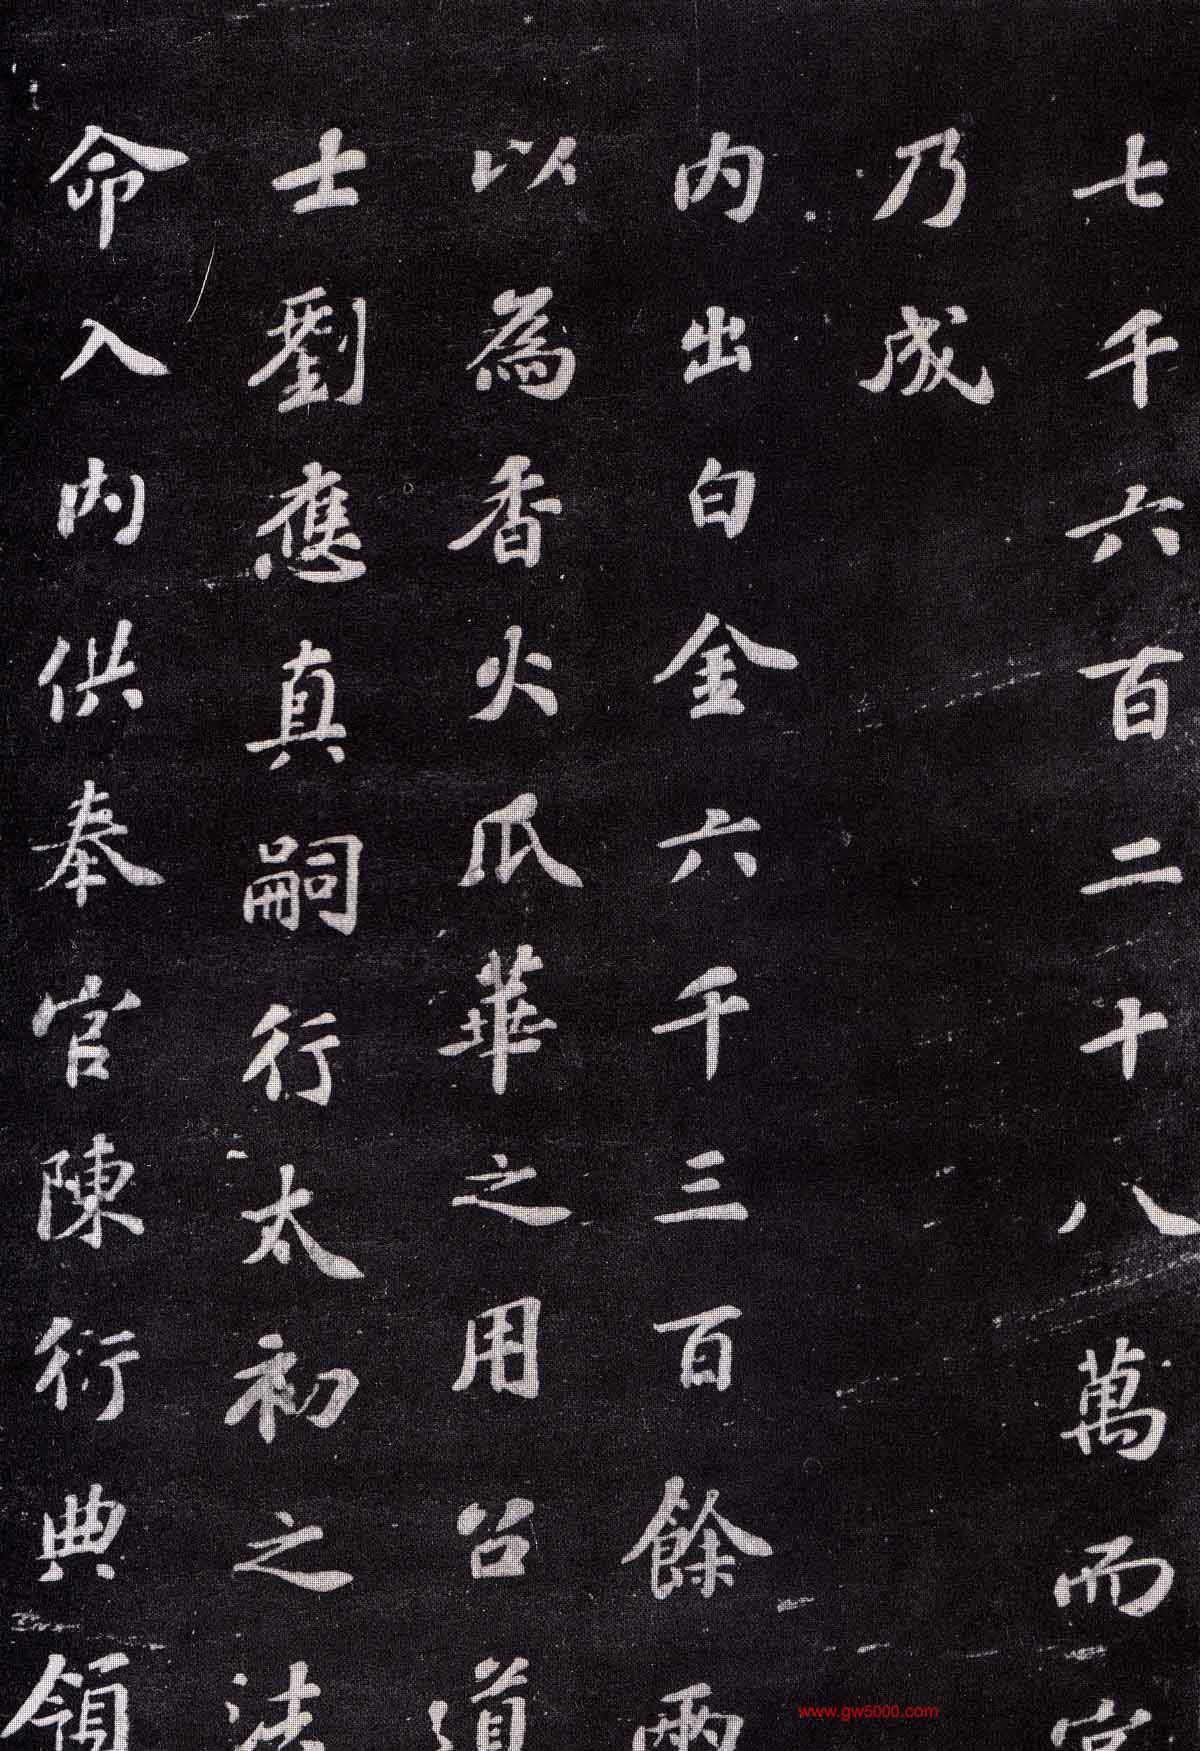 七千六百二十八萬而宮
乃成
内出白金六千三百餘兩
以為香火瓜華之用召道
士劉應真嗣行太初之法
命入内供奉官陳衍典領
www.gw5000.com